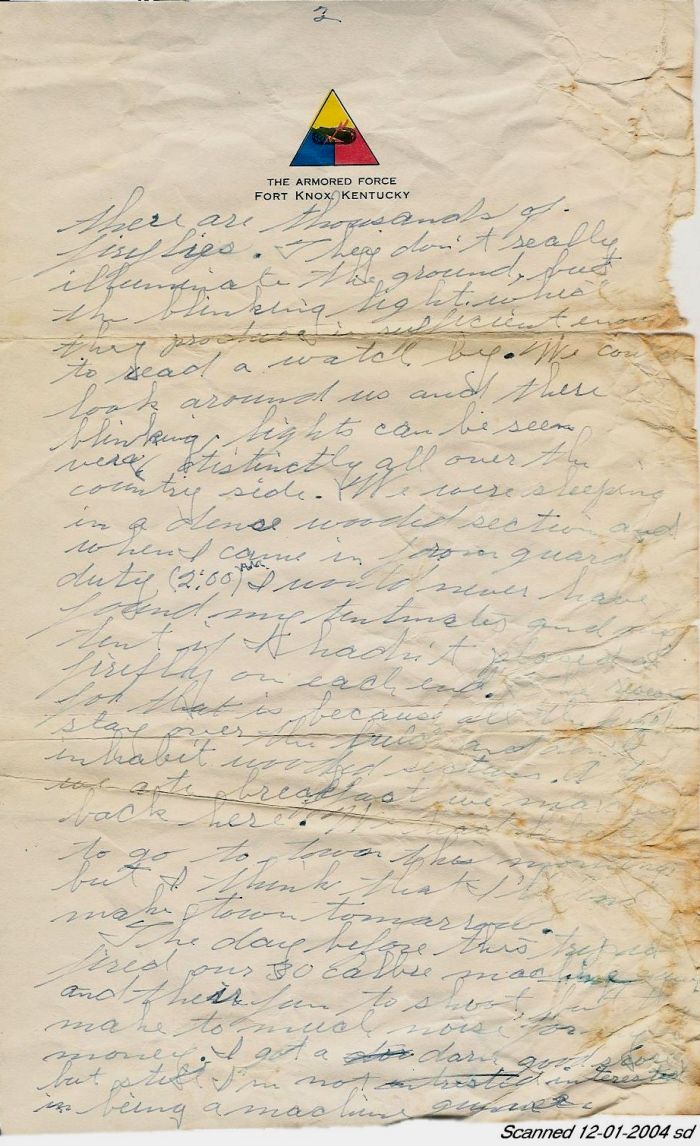 2
THE ARMORED FORCE
FORT KNOX, KENTUCKY
there are thousands of
fireflies. They don't really
illuminate the ground, but
the blinking light which
they produce is sufficient
to read a watch by. We could
look around us and there
blinking lights can be seen
very distinctly all over the
country side. We were sleeping
in a dense wooded section and
when I came in from guard
duty (2:00) A.M. I would never have
found my tentmates and my
tent if I hadn't placed a
firefly on each end. The reason
for that is because all the
stay over the and don't
inhabit wooded sections.
we ate breakfast we
back here.
to go to town this
but I think that I'll
make town tomorrow.
The day before this
fired our 30 calbre machine
and their fun to shoot but
make to much noise for my
money. I got a darn good score
but still I'm not interested
in being a machine gunner.
Scanned 12-01-2004 sd